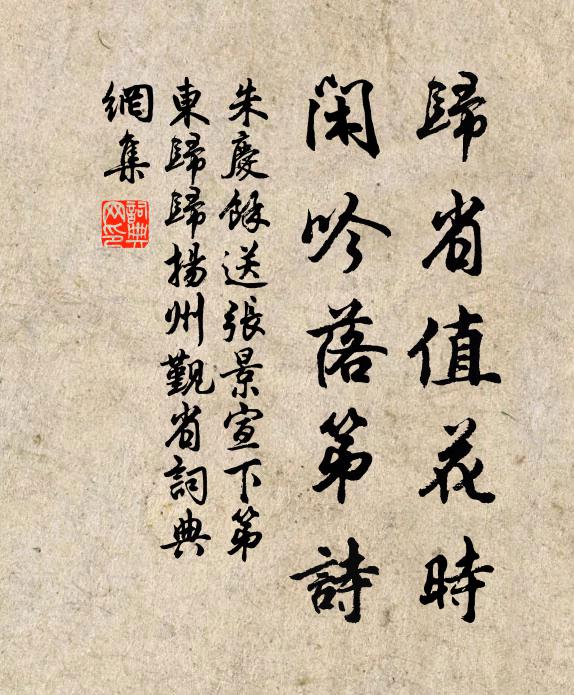 歸省值花時
閑吟落第詩
朱慶餘送張景宣下第
東歸歸揚州覲省詞典
網集
詞典
网印